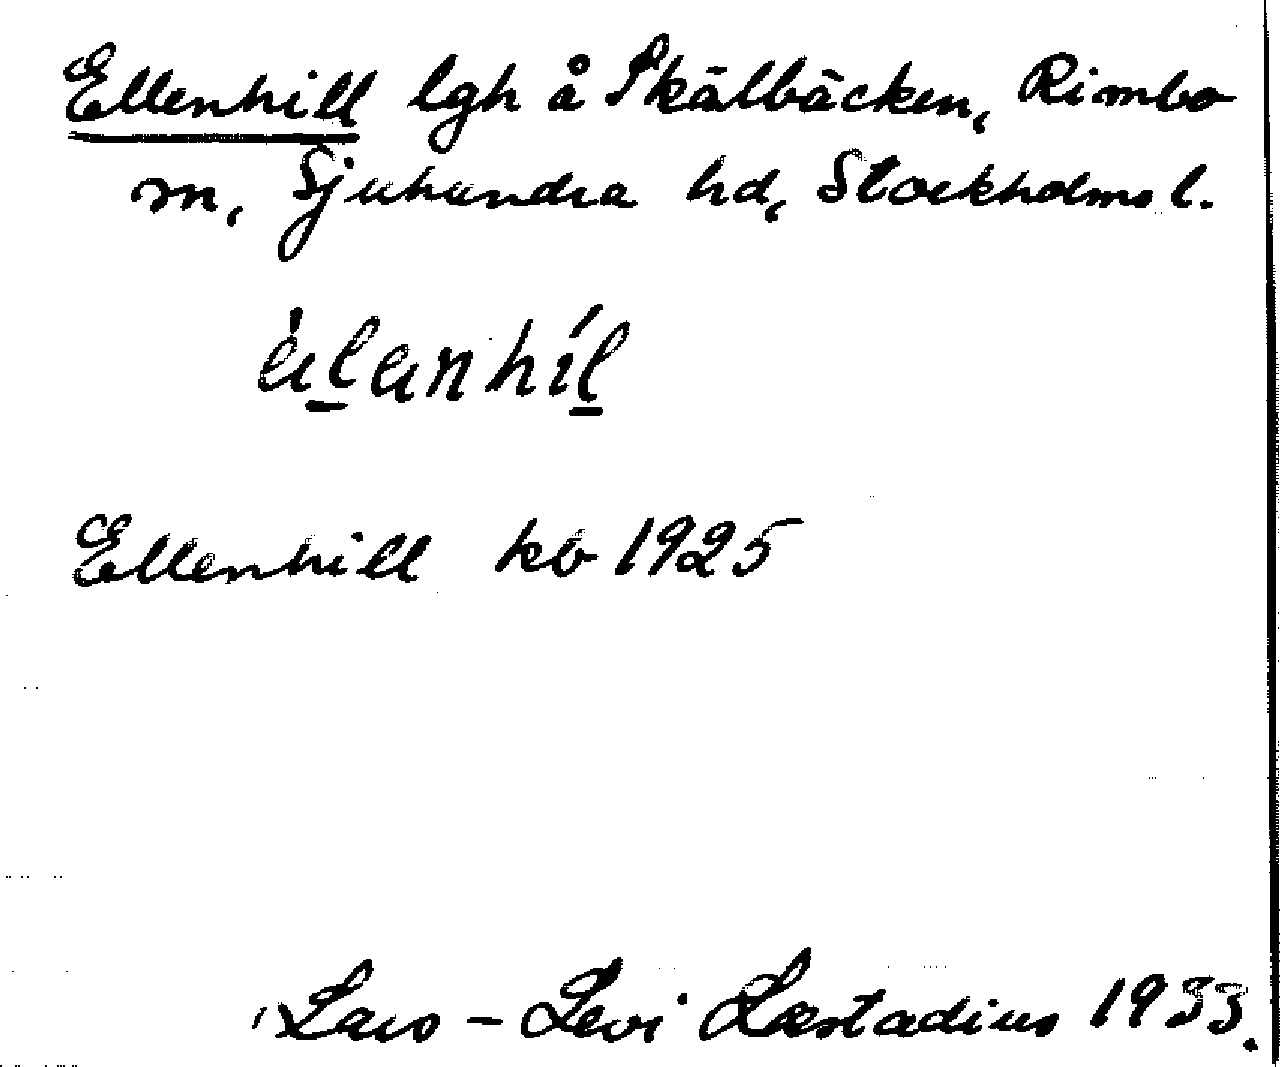 Ellenhill lgh å Skälbäcken, Rimbo
sn, Sjuhundra hd, Stockholms l.
Ellenhill kb 1925
Lars-Levi Læstadius 1933.